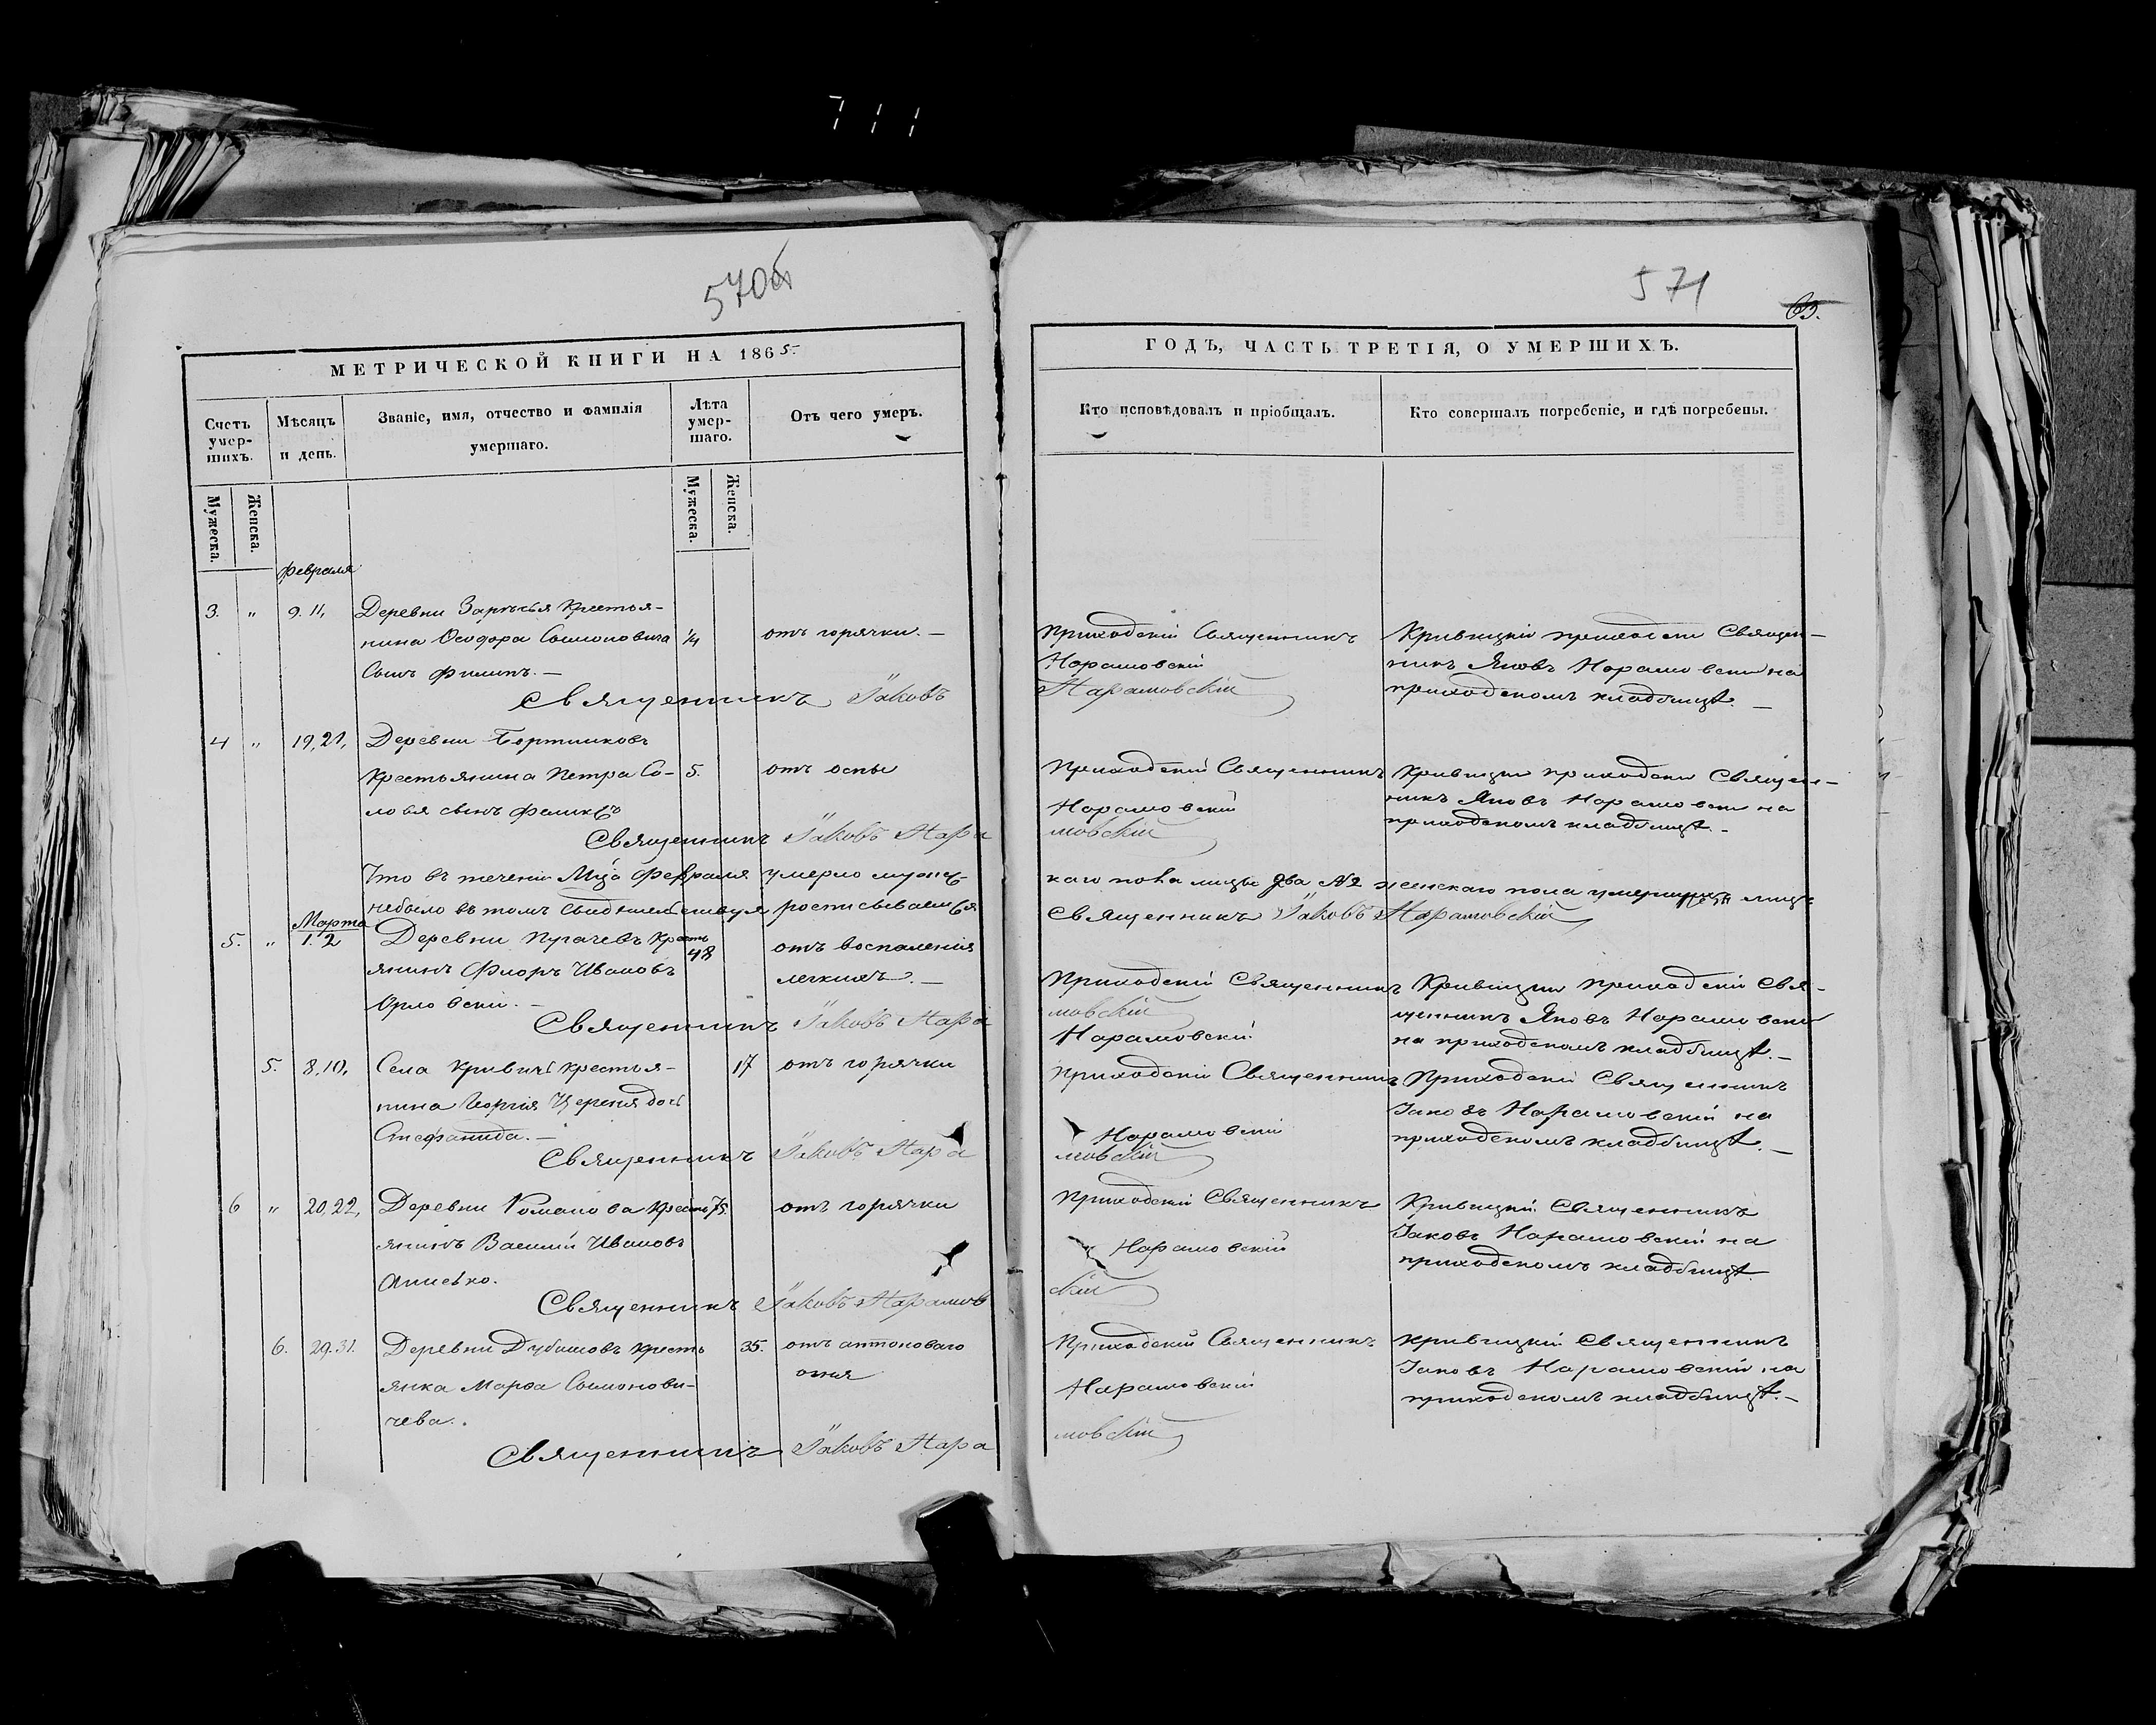 711
570об
МЕТРИЧЕСКОЙ КНИГИ НА 1865
Счетъ умер-шихъ.
Мѣсяцъ и день.
Званіе, имя, отчество и фамилія умершаго.
Лѣта умер-шаго.
Отъ чего умеръ.
Мужеска.
Женска.
Мужеска.
Женска.
Февраля
3. " 9. 11, Деревни Зарѣчья Крестья-
нина Ѳеодора Сымоновича 1/4 отъ горячки. –
Сынъ Филипъ. –
Священникъ Іаковъ
4 " 19, 21, Деревни Бортниковъ
Крестьянина Петра Со- 5. отъ оспы
ловья сынъ Феликсъ
Священникъ Іаковъ Нара
Что въ теченіи Мца Февраля умерло мужес
небыло въ томъ свидѣтельствуя росписываемся
Марта
5. " 1. 2 Деревни Пугачевъ Кресть
янинъ Флоръ Ивановъ 48 отъ воспаленія
Орловскій. – легкихъ. –
Священникъ Іаковъ Нара
5. 8, 10, Села Кривичъ Крестья- 17 отъ горячки
нина Георгія Череня дочь
Стефанида. –
Священникъ Іаковъ Нара
6 " 20, 22, Деревни Романова Кресть 75. отъ горячки
янинъ Василій Ивановъ
Священникъ Іаковъ Нарамов
6. 29. 31. Деревни Дубашовъ Кресть 35. отъ антоноваго
янка Марѳа Сымонови- огня
чева.
Священникъ Іаковъ Нара
571
63.
ГОДЪ, ЧАСТЬ ТРЕТІЯ, О УМЕРШИХЪ.
Кто исповѣдовалъ и пріобщалъ.
Кто совершалъ погребеніе, и гдѣ погребены.
Приходскій Священникъ Кривицкій приходскій Священ-
Нарамовскій никъ Яковъ Нарамовскій на
Нарамовскій приходскомъ кладбищѣ. –
Приходскій Священникъ Кривицкій приходскій Священ-
Нарамовскій никъ Яковъ Нарамовскій на
мовскій приходскомъ кладбищѣ. –
каго пола лицъ два № 2 женскаго пола умершихъ лицъ
Священникъ Іаковъ Нарамовскій
Приходскій Священникъ Кривицкій приходскій Свя-
мовскій щенникъ Яковъ Нарамовскій
Нарамовскій на приходскомъ кладбищѣ. –
Приходскій Священникъ Приходскій Священникъ
Іаковъ Нарамовскій на
Нарамовскій приходскомъ кладбищѣ. –
мовскій
Приходскій Священникъ Кривицкій Священникъ
Нарамовскій Іаковъ Нарамовскій на
скій приходскомъ кладбищѣ
Приходскій Священникъ Кривицкій Священникъ
Нарамовскій Іаковъ Нарамовскій на
мовскій приходскомъ кладбищѣ. –